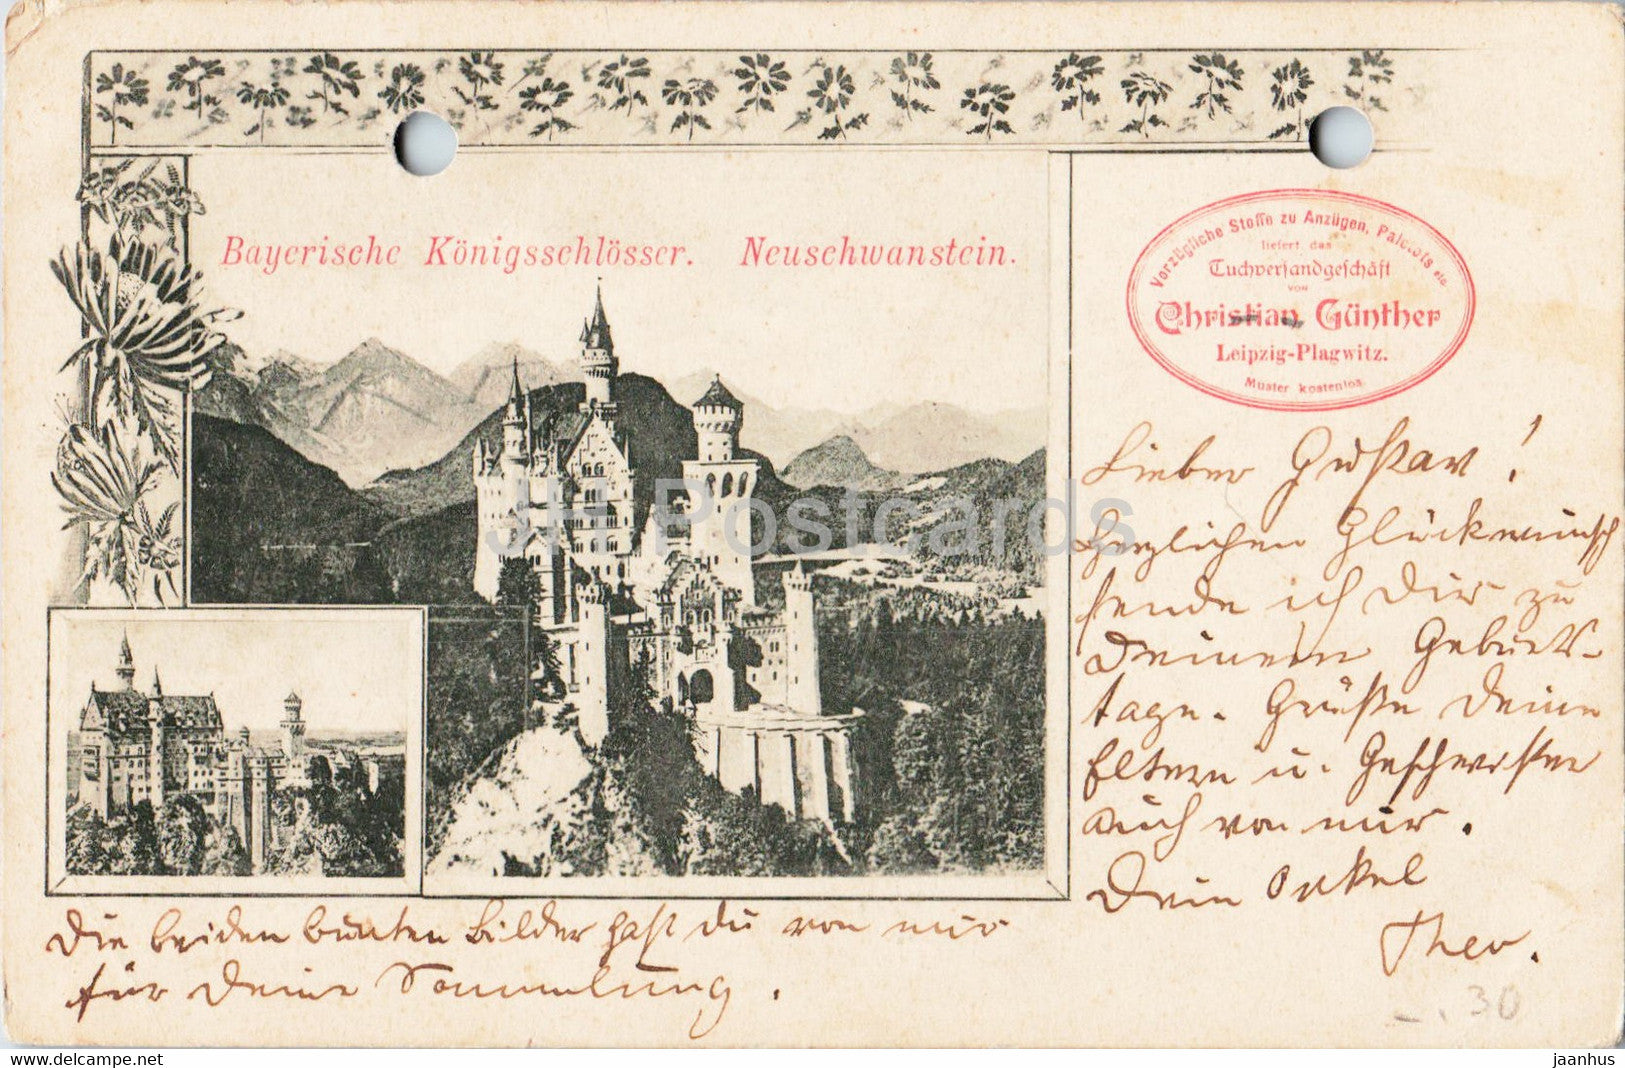 Bayerische Königsschlösser. Neuschwanstein.
Vorzügliche Stoffe zu Anzügen, Paletots etc.
liefert das
Tuchversandgeschäft
von
Christian Günther
Leipzig-Plagwitz.
Muster kostenlos.
JH Postcards
Lieber Gustav!
Herzlichen Glückwunsch
sende ich Dir zu
Deinem Geburts-
tage. Grüße Deine
Eltern u. Geschwister
auch von mir.
Dein Onkel
Theo.
Die beiden bunten Bilder hast du von mir
für Deine Sammlung.
-.30
jaanhus
www.delcampe.net